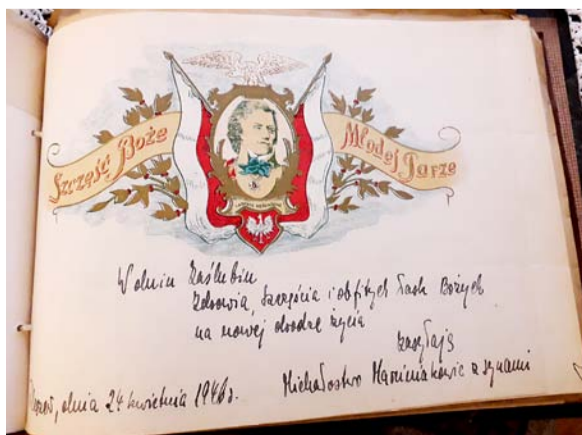 Szczęść Boże
Młodej Parze
W dniu Zaślubin
Zdrowia, Szczęścia i obfitych Łask Bożych
na nowej drodze życia
zasyłają
Michałostwo Marciniakowie z synami
dnia 24 kwietnia 1946r.